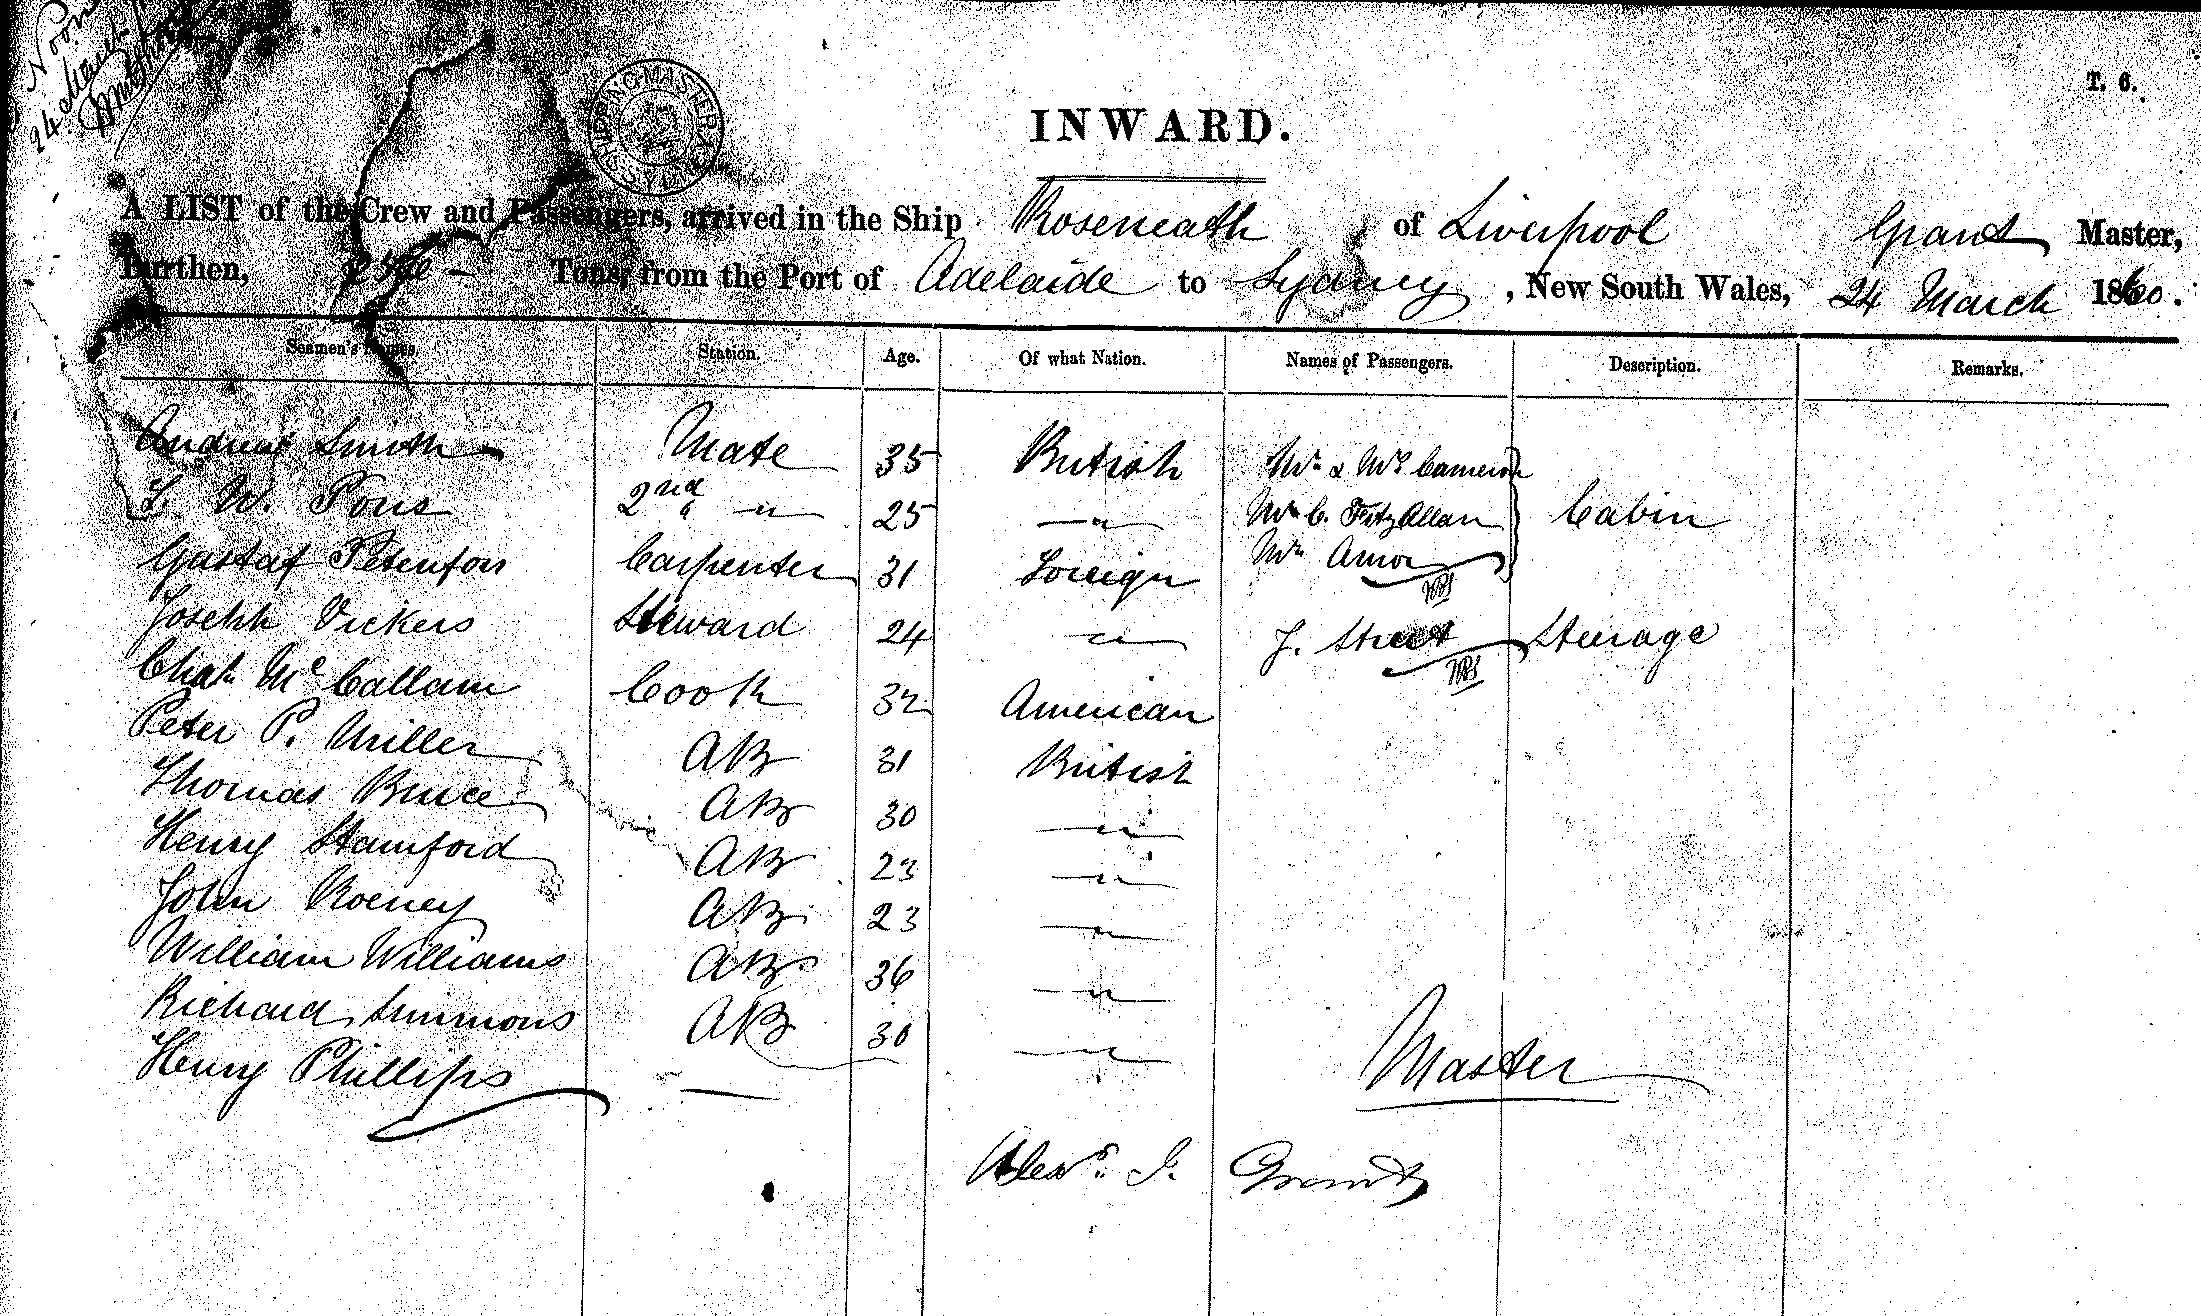 Noon
24 March
T. 6.
SHIPPING MASTER
INWARD.
A LIST of the Crew and Passengers, arrived in the Ship Roseneath of Liverpool Grant Master,
Burthen, Tons, from the Port of Adelaide to Sydney, New South Wales, 24 March 1860.
Seamen's Names. Station. Age. Of what Nation. Names of Passengers. Description. Remarks.
Andrew Smith Mate 35 British Mr & Mrs Cameron
W. Pous 2nd " 25 " Mr C. FitzAllan Cabin
Gustaf Petersson Carpenter 31 Foreign Mr Amor
Joseph Vickers Steward 24 " J. Street Steerage
Chas. McCallam Cook 32 American
Peter P. Miller AB 31 British
Thomas Bruce AB 30 "
Henry Stamford AB 23 "
John Roeney AB 23 "
William Williams AB 36 "
Richard Simmons AB 30 "
Henry Phillips —
Master
Alexr. J. Grant